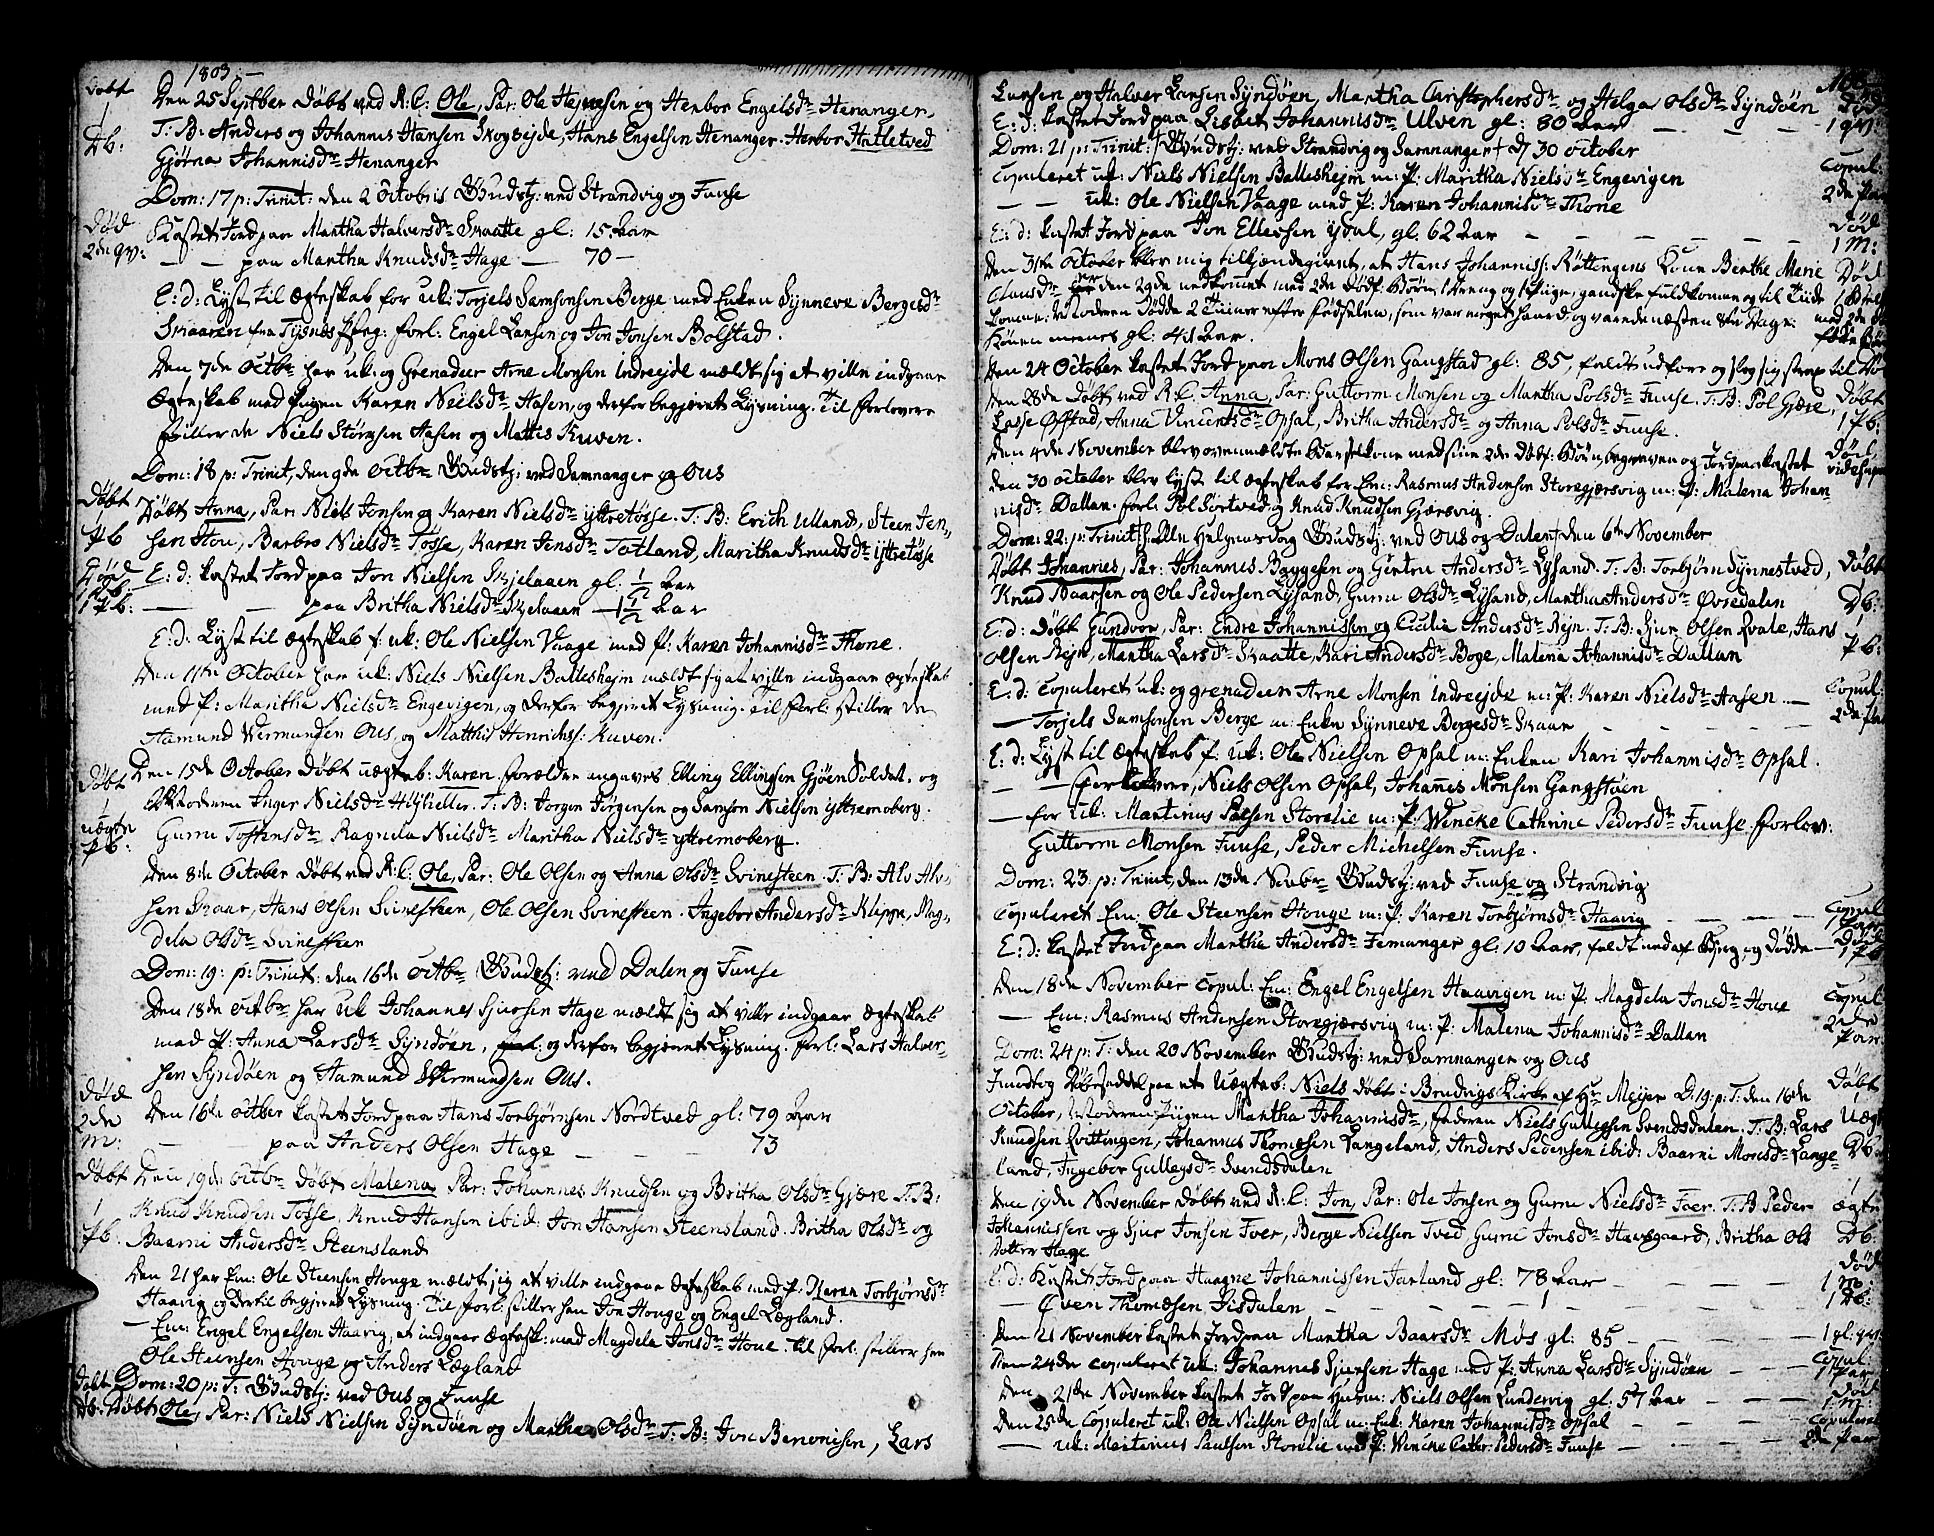 1803.
Døbt Den 25 Septber Døbt ved R: C: Ole, Par: Ole Hejnesen og Herbor Engilsdr Henanger,
1 Db: T: B: Anders og Johannes Hansen Skogsejde, Hans Engelsen Henanger. Herbor Hatletved
Gjørna Johannisdr Henanger
Dom: 17 p: Trinit: den 2 Octobris Gudstj: ved Strandvig og Fuuse
Død Kastet Jord paa Martha Halversdr Skaatte gl: 15. Aar
2de qv: — — paa Martha Knudsdr Hage — 70 —
E: d: Lyst til Ægteskab for uk: Torjels Samsonsen Berge med Enken Synneve Bergesdr
Skaaren fra Tysnes Pfrg: forl: Engel Larsen og Jon Jonsen Bolstad.
Den 7de Octbr har uk: og Grenadeer Arne Monsen Indreejde mældt sig at ville indgaae
Ægteskab med Pigen Karen Nielsdr Aasen, og derfor begjæret Lysning. Til Forlovere
stiller de Niels Størksen Aasen og Mattis Kuven.
Dom: 18 p: Trinit, den 9de Octbr Gudstj: ved Samnanger og Ous
Døbt Døbt Anna, Par: Niels Jonsen og Karen Nielsdr Yttretøsse. T. B: Erich Ulland, Steen Jen-
Pb sen Hou, Barbro Nielsdr Tøsse, Karen Jensdr Tætland, Maritha Knudsdr Yttretøsse
Død E: d: kastet Jord paa Jon Nielsen Skjelaaen gl: ½ Aar
1 Pb: — — paa Britha Nielsdr Skjelaaen — 1½ Aar
E: d: Lyst til Ægteskab f: uk: Ole Nielsen Vaage med P: Karen Johannisdr Thone.
Den 11te October har uk: Niels Nielsen Balleshejm mældt sig at ville indgaae Ægteskab
med P: Maritha Nielsdr Engevigen, og derfor begjæret Lysning. Til Forl: stiller de
Aamund Vermundsen Ous, og Matthis Henrichss: Kuven.
Døbt Den 15de October Døbt uægteb: Karen. Forældre angaves Elling Ellingsen Gjøen Soldat, og
1 Moderen Inger Nielsdr Højsætter. T. B: Jørgen Jørgensen og Samson Nielsen Yttremoberg.
uægte Pb: Gurru Toffensdr Ragnela Nielsdr Maritha Nielsdr Yttremoberg.
Den 8de October Døbt ved R: C: Ole, Par: Ole Olsen og Anna Olsdr Svinesteen. T. B: Alv Alv-
sen Skaar, Hans Olsen Svinesteen, Ole Olsen Svinesteen. Ingebor Andersdr Klippe, Mag-
dela Olsdr Svinesteen
Dom: 19: p: Trinit: den 16de Octbr Gudstj: ved Dalen og Fuuse
Den 18de Octbr har uk Johannes Sjursen Hage mældt sig at ville indgaae Ægteskab
med P: Anna Larsdr Syndøen, og derfor begjæret Lysning. Forl: Lars Halver-
sen Syndøen og Aamund Vermundsen Ous.
Død 2de M: Den 16de Octber kastet Jord paa Hans Torbjørnsen Nordtved gl: 79 Aar
— — paa Anders Olsen Hage — — — 73
Døbt Den 19de Octbr Døbt Malena Par: Johannes Knudsen og Britha Olsdr Gjære T. B:
1 Knud Knudsen Tøsse, Knud Hansen ibid: Jon Hansen Steensland. Britha Olsdr og
Pb. Baarni Andersdr Steensland
Den 21 har Em: Ole Steensen Houge mældt sig at ville indgaae Ægteskab med P. Karen Torbjørnsdr
Haavig og dertil begjæret Lysning. Til Forl: stiller han Jon Houge og Engel Lægland.
— Em: Engel Engelsen Haavig, at indgaae Ægtesk: med Magdela Jonsdr Houe. Til Forl: stiller han
Ole Steensen Houge og Anders Lægland
Døbt Dom: 20 p: T: Gudstj: ved Ous og Fuuse
Db: Døbt Ole, Par: Niels Nielsen Syndøen og Martha Olsdr T. B: Jon Beronisen, Lars
Larsen og Halver Larsen Syndøen, Martha Christophersdr og Helga Olsdr Syndøen
E: d: kastet Jord paa Lisbet Johannisdr Ulven gl: 80 Aar — — — Død 1 qv:
Dom: 21 p: Trinit: Gudstj: ved Strandvig og Samnanger d 30 October
Copuleret uk: Niels Nielsen Balleshejm m: P: Maritha Nielsdr Engevigen Copul:
— — uk: Ole Nielsen Vaage med P: Karen Johannisdr Thone 2de Par
E: d: kastet Jord paa Jon Ellessen Ydal, gl: 62 Aar — — — Død 1 M:
Den 31te October blev mig tilkjændegivet, at Hans Johanniss: Røttingens Kone Berthe Marie Død
Clausdr er den 29de nedkommet med 2de Dødf: Børn, 1 Dreng og 1 Pige, gandske fuldkomne og til Tiide
komne. Moderen Døde 2 Timer efter Fødselen, som var meget haard, og varede næsten 8te Dage.
Konen menes gl: 41 Aar.
Den 24 October kastet Jord paa Mons Olsen Gangstad gl: 85, faldt udfore og slog sig strax til
Den 28de Døbt ved R. C. Anna, Par: Guttorm Monsen og Martha Polsdr Fuuse. T. B: Pol Gjære, Døbt
Lasse Øfstad, Anna Vincentsdr Opsal, Britha Andersdr og Anna Polsdr Fuuse. 1 Pb:
Den 4de November blev ovenmældte Barselkone med sine 2de Dødf: Børn begraven og Jord paakastet Død
Den 30 October blev lyst til Ægteskab for Em: Rasmus Andersen Storegjærsvig m: P: Malena Johan-
nisdr Dallan. Forl: Pol Sørtved og Knud Knudsen Gjersvig.
Dom: 22: p: Trinit: Alle Helgensdag Gudstj: ved Ous og Dalen den 6te November
Døbt Johannes, Par: Johannes Baggesen og Gjertru Andersdr Lysand. T. B: Torbjørn Synnestved, Døbt
Knud Baarsen og Ole Pedersen Lysand, Gurru Olsdr Lysand, Martha Andersdr Øvredalen Db:
E: d: Døbt Gundvor, Par: Endre Johannissen og Cicilie Andersdr Røjn. T. B: Sjur Olsen Qvale, Hans 1
Olsen Røjn, Martha Larsdr Skaatte, Kari Andersdr Boge, Malena Johannisdr Dallan Pb:
E: d: Copuleret uk: og grenadeer Arne Monsen Indreejde m: P: Karen Nielsdr Aasen — Copul:
— Torjels Samsonsen Berge m: Enke Synneve Bergesdr Skaar — — — 2de Par
E: d: Lyst til Ægteskab f: uk: Ole Nielsen Opsal m: Enken Kari Johannisdr Opsal.
— — Forlovere, Niels Olsen Opsal, Johannes Monsen Gangstøen
— for uk: Martinus Polsen Storelie m: P: Wencke Cathrine Pedersdr Fuuse Forlov:
Guttorm Monsen Fuuse, Peder Michelsen Fuuse.
Dom: 23: p: Trinit, den 13de Novbr Gudstj: ved Fuuse og Strandvig
Copuleret Em: Ole Steensen Houge m: P: Karen Torbjørnsdr Haavig — — — Copul 1 Par
E: d: kastet Jord paa Martha Andersdr Femanger gl: 10 Aar, faldt ned af Bjerg, og Døde — Død 1 Pb
Den 18de November Copul: Em: Engel Engelsen Haavigen m: P: Magdela Jonsdr Houe Copul:
— Em: Rasmus Andersen Storegjærsvig m: P: Malena Johannisdr Dallan 2de Par
Dom: 24 p: T: den 20 November Gudstj: ved Samnanger og Ous
Indtog Døbseddel paa et Uægteb: Niels Døbt i Bruvigs Kirke af Hr Meijer D: 19: p: T: den 16de Døbt
October, Moderen Pigen Martha Johannisdr, faderen Niels Gullejssen Svendsdalen. T. B: Lars Uægt
Knudsen Qvittingen, Johannes Thomesen Langeland, Anders Pedersen ibid: Baarni Monsdr Lange- Db
land, Ingebor Gullejsdr Svendsdalen
Den 19de November Døbt ved R: C: Jon, Par: Ole Jonsen og Gurru Nielsdr Toer. T: B Peder 1 ægte
Johannissen og Sjur Jonsen Toer, Berge Nielsen Tved Gurru Jonsdr Haavsgaard, Britha Ols Db:
Datter Hage
E: d: Kastet Jord paa Haagne Johannissen Jarland gl: 78 Aar — — Død 1 M:
— Øven Thomesen Gisdalen — — — 1 — — — 1 Db:
Den 21 November kastet Jord paa Martha Baarsdr Møs gl: 85 — — — 1 gl: qv:
Den 24de Copuleret uk: Johannes Sjursen Hage med P: Anna Larsdr Syndøen — — Copul: 1 Par
Den 21de November kastet Jord paa Huusm: Niels Olsen Lundervig gl. 57 Aar — — Død 1 M:
Den 25de Copuleret uk: Ole Nielsen Opsal m: Enk: Karen Johannisdr Opsal — — Copuleret
— uk: Martinus Paulsen Storelie med P: Wencke Cathr: Pedersdr Fuuse — — 2de Par